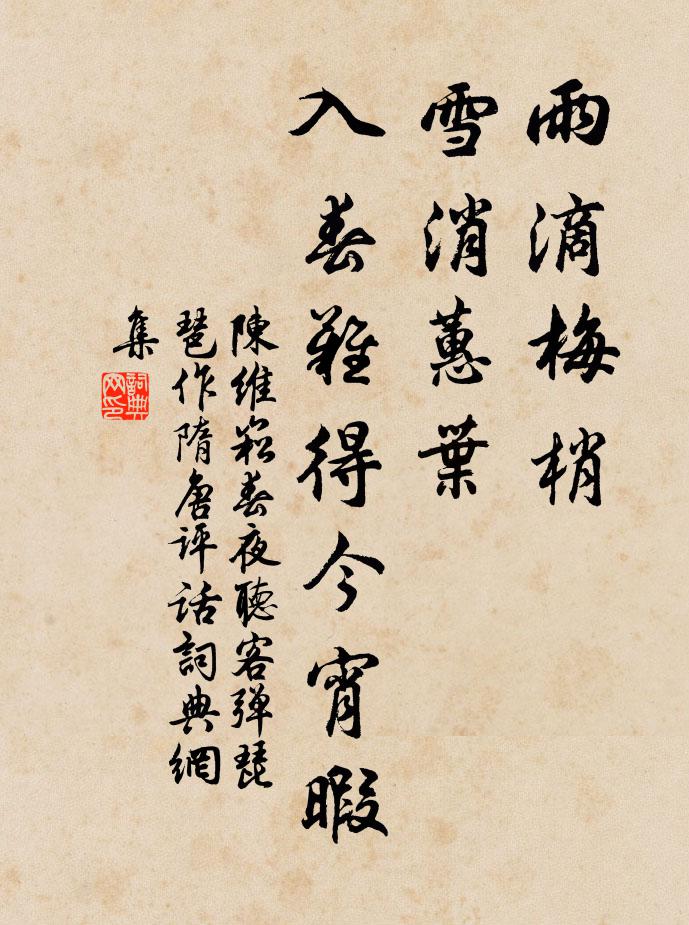 雨滴梅梢
雪消蕙葉
入春難得今宵暇
陳維崧春夜聽客彈琵
琶作隋唐评话詞典網
集
詞典
网印